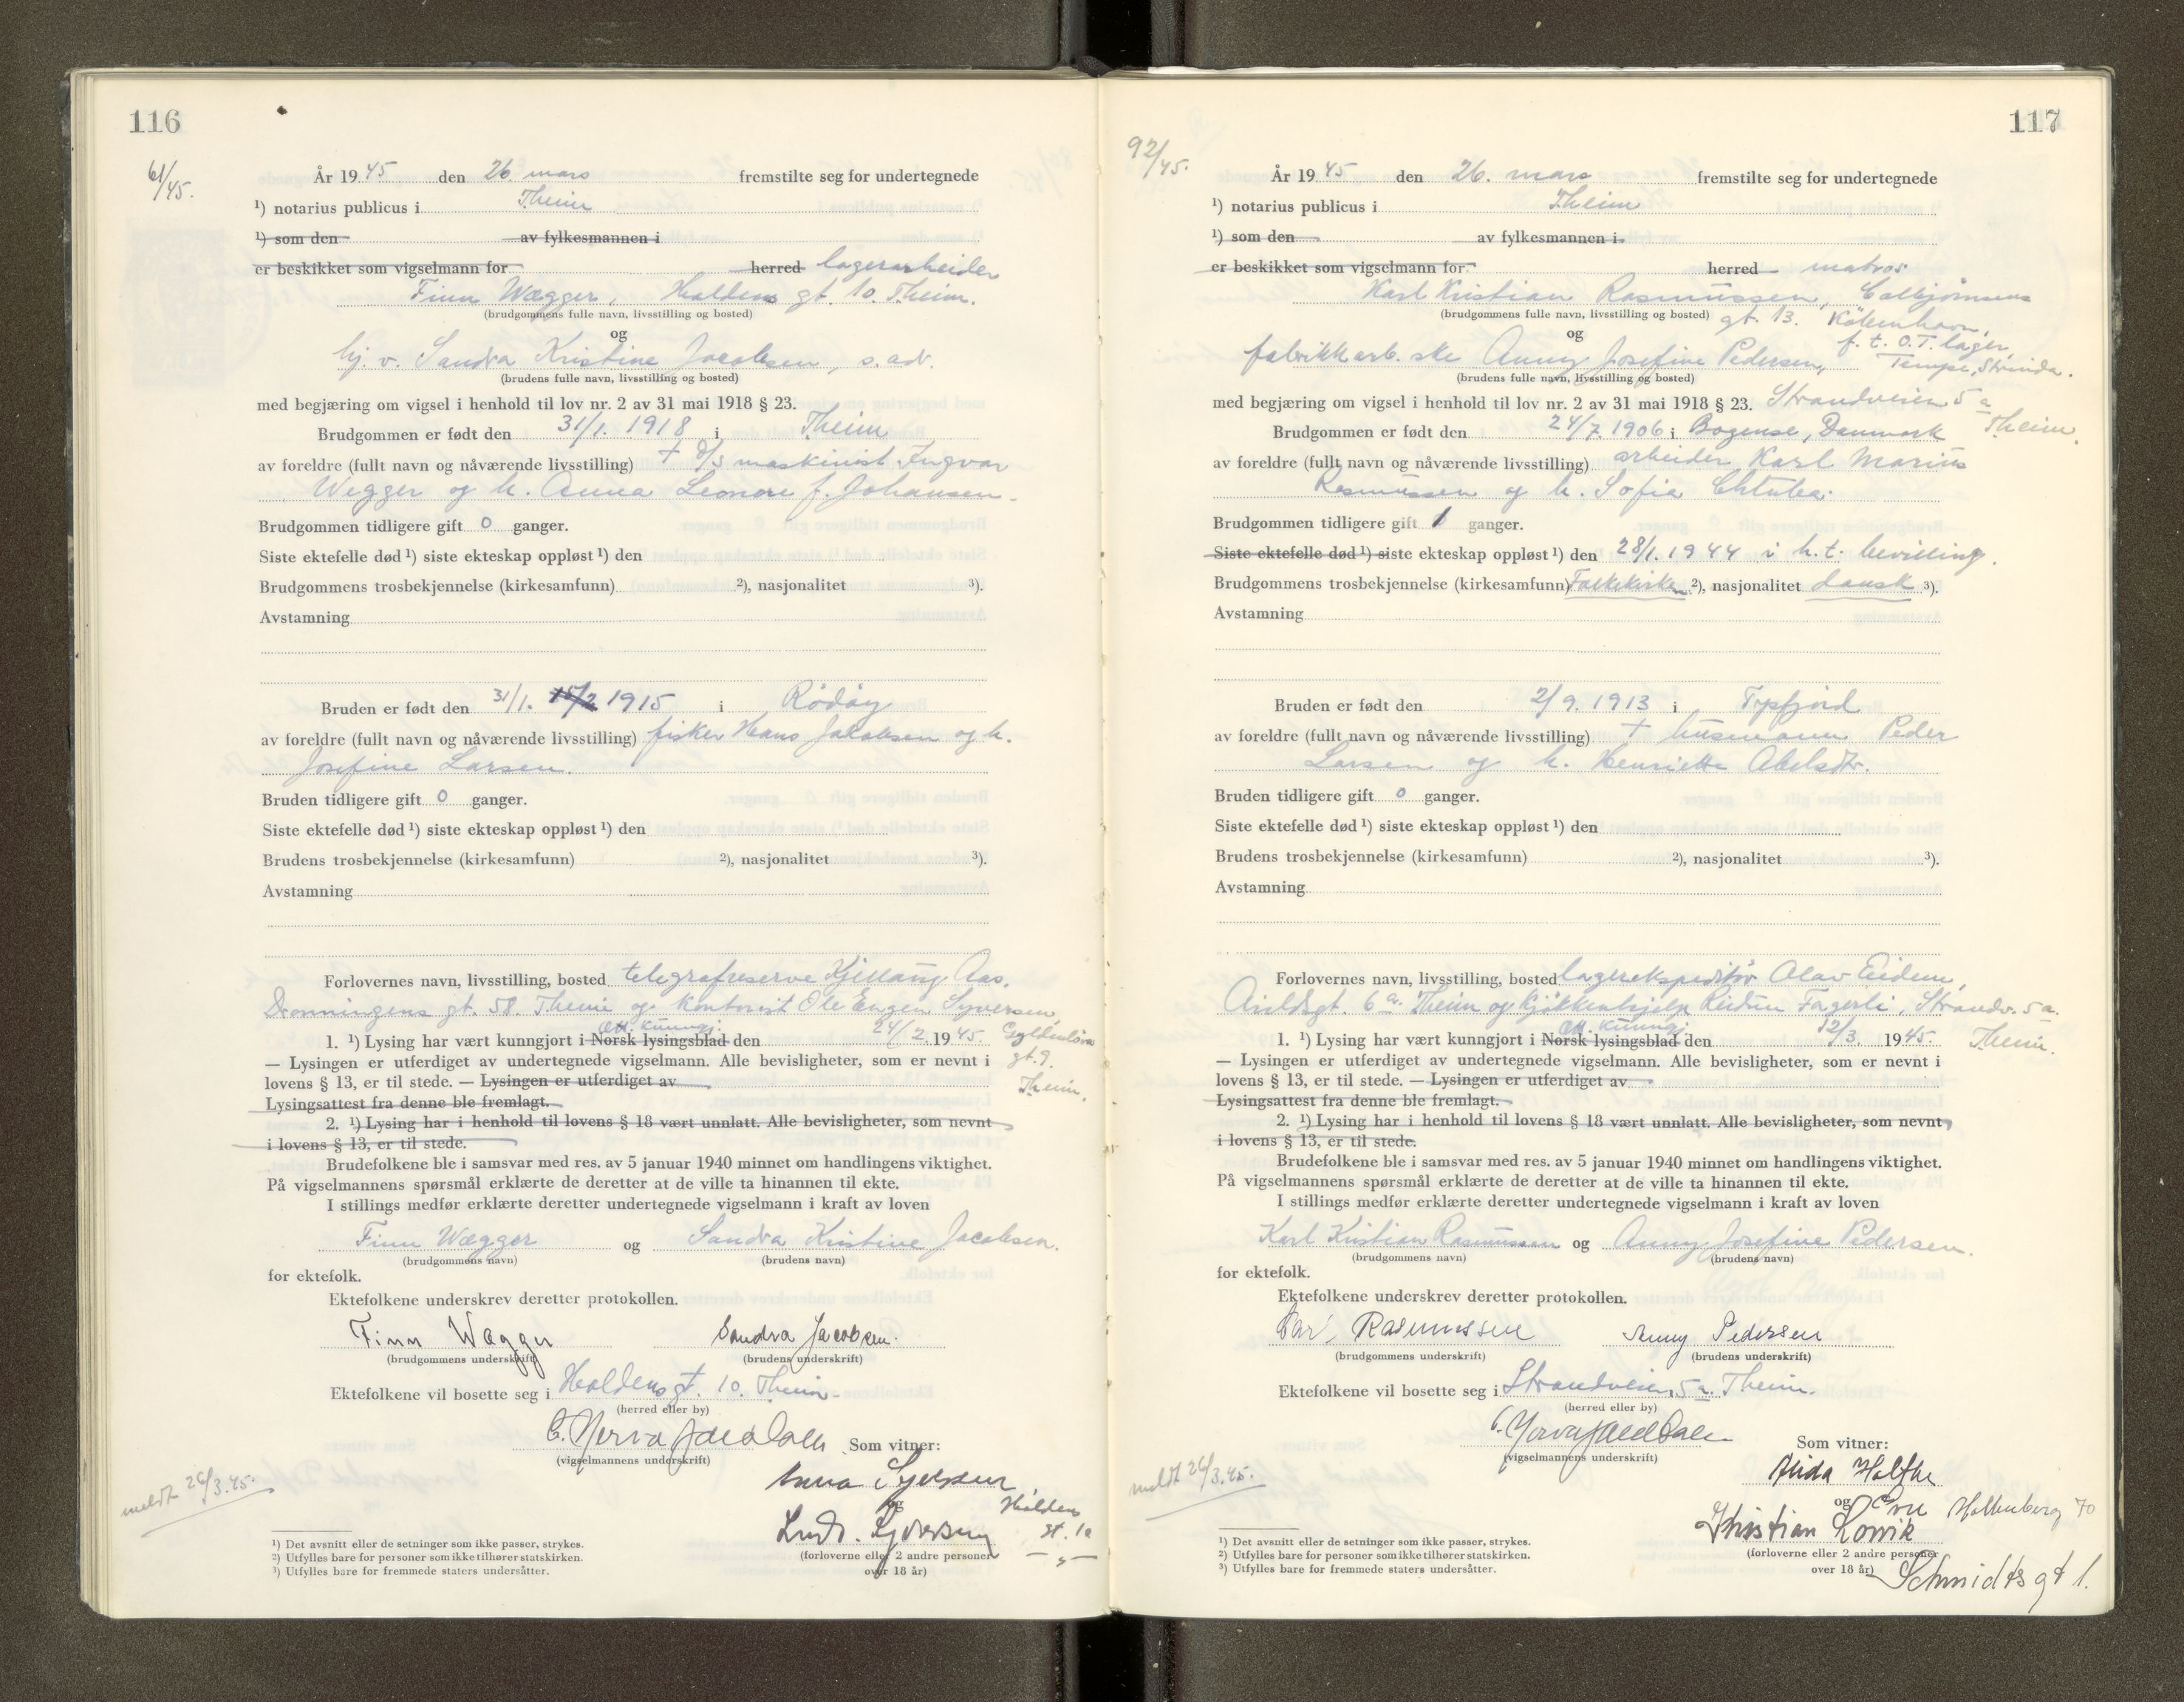 116
61/45.
År 1945 den 26. mars fremstilte seg for undertegnede
¹) notarius publicus i Theim
¹) som den av fylkesmannen i
er beskikket som vigselmann for herred lagerarbeider
Finn Wægger, Haldens gt. 10. Theim.
(brudgommens fulle navn, livsstilling og bosted)
og
hj. v. Sandra Kristine Jacobsen, s. adr.
(brudens fulle navn, livsstilling og bosted)
med begjæring om vigsel i henhold til lov nr. 2 av 31 mai 1918 § 23.
Brudgommen er født den 31/1. 1918 i Theim
av foreldre (fullt navn og nåværende livsstilling) + maskinist Ingvar
Wegger og h. Anna Leonore f. Johansen.
Brudgommen tidligere gift 0 ganger.
Siste ektefelle død ¹) siste ekteskap oppløst ¹) den
Brudgommens trosbekjennelse (kirkesamfunn) ²), nasjonalitet ³).
Avstamning
Bruden er født den 31/1. 15/2 1915 i Rödöy
av foreldre (fullt navn og nåværende livsstilling) fisker Hans Jacobsen og h.
Josefine Larsen.
Bruden tidligere gift 0 ganger.
Siste ektefelle død ¹) siste ekteskap oppløst ¹) den
Brudens trosbekjennelse (kirkesamfunn) ²), nasjonalitet ³).
Avstamning
Forlovernes navn, livsstilling, bosted telegrafreserve Kjellaug Aas.
Dronningens gt. 58. Theim og kontorist Ole Eugen Syversen,
att. kunngj.
1. ¹) Lysing har vært kunngjort i Norsk lysingsblad den 24/2. 1945. Gyldenløves
— Lysingen er utferdiget av undertegnede vigselmann. Alle bevisligheter, som er nevnt i gt. 9.
lovens § 13, er til stede. — Lysingen er utferdiget av Theim.
Lysingsattest fra denne ble fremlagt.
2. ¹) Lysing har i henhold til lovens § 18 vært unnlatt. Alle bevisligheter, som nevnt
i lovens § 13, er til stede.
Brudefolkene ble i samsvar med res. av 5 januar 1940 minnet om handlingens viktighet.
På vigselmannens spørsmål erklærte de deretter at de ville ta hinannen til ekte.
I stillings medfør erklærte deretter undertegnede vigselmann i kraft av loven
Finn Wægger og Sandra Kristine Jacobsen.
(brudgommens navn) (brudens navn)
for ektefolk.
Ektefolkene underskrev deretter protokollen.
Finn Wægger Sandra Jacobsen.
(brudgommens underskrift) (brudens underskrift)
Ektefolkene vil bosette seg i Haldensgt. 10. Theim.
(herred eller by)
Som vitner:
(vigselmannens underskrift)
meldt 26/3.45.
og
Haldens
gt. 10
(forloverne eller 2 andre personer
over 18 år)
¹) Det avsnitt eller de setninger som ikke passer, strykes.
²) Utfylles bare for personer som ikke tilhører statskirken.
³) Utfylles bare for fremmede staters undersåtter.
117
92/45.
År 1945 den 26. mars fremstilte seg for undertegnede
¹) notarius publicus i Theim
¹) som den av fylkesmannen i
er beskikket som vigselmann for herred matros
Karl Kristian Rasmussen, Colbjørnsens
(brudgommens fulle navn, livsstilling og bosted) gt. 13. København,
og f. t. O.T. lager,
fabrikkarb.ske Anny Josefine Pedersen, Tempe, Strinda.
(brudens fulle navn, livsstilling og bosted)
med begjæring om vigsel i henhold til lov nr. 2 av 31 mai 1918 § 23. Strandveien 5 a
Brudgommen er født den 24/7. 1906 i Bogense, Danmark Theim.
av foreldre (fullt navn og nåværende livsstilling) arbeider Karl Marius
Rasmussen og h. Sofia
Brudgommen tidligere gift 1 ganger.
Siste ektefelle død ¹) siste ekteskap oppløst ¹) den 28/1. 1944 i h. t. bevilling.
Brudgommens trosbekjennelse (kirkesamfunn) Folkekirken ²), nasjonalitet dansk ³).
Avstamning
Bruden er født den 2/9. 1913 i Tysfjord
av foreldre (fullt navn og nåværende livsstilling) + husmann Peder
Larsen og h. Henriette Abelsdtr.
Bruden tidligere gift 0 ganger.
Siste ektefelle død ¹) siste ekteskap oppløst ¹) den
Brudens trosbekjennelse (kirkesamfunn) ²), nasjonalitet ³).
Avstamning
Forlovernes navn, livsstilling, bosted lagerekspeditör Olav Eidem,
Arildsgt. 6a. Theim og kjökkenhjelp Reidun Fagerli, Strandv. 5 a.
att. kunngj.
1. ¹) Lysing har vært kunngjort i Norsk lysingsblad den 12/3. 1945. Theim.
— Lysingen er utferdiget av undertegnede vigselmann. Alle bevisligheter, som er nevnt i
lovens § 13, er til stede. — Lysingen er utferdiget av
Lysingsattest fra denne ble fremlagt.
2. ¹) Lysing har i henhold til lovens § 18 vært unnlatt. Alle bevisligheter, som nevnt
i lovens § 13, er til stede.
Brudefolkene ble i samsvar med res. av 5 januar 1940 minnet om handlingens viktighet.
På vigselmannens spørsmål erklærte de deretter at de ville ta hinannen til ekte.
I stillings medfør erklærte deretter undertegnede vigselmann i kraft av loven
Karl Kristian Rasmussen og Anny Josefine Pedersen.
(brudgommens navn) (brudens navn)
for ektefolk.
Ektefolkene underskrev deretter protokollen.
Karl Rasmussen Anny Pedersen
(brudgommens underskrift) (brudens underskrift)
Ektefolkene vil bosette seg i Strandveien 5 a. Theim.
(herred eller by)
Som vitner:
(vigselmannens underskrift)
meldt 26/3.45.
Alida
og
Kristian
(forloverne eller 2 andre personer
over 18 år) Schmidts gt 1.
¹) Det avsnitt eller de setninger som ikke passer, strykes.
²) Utfylles bare for personer som ikke tilhører statskirken.
³) Utfylles bare for fremmede staters undersåtter.